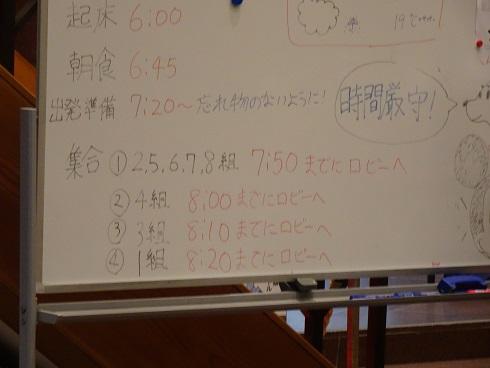 起床 6:00
朝食 6:45
出発準備 7:20〜 忘れ物のないように!
時間厳守!
集合 ① 2,5,6,7,8組 7:50 までにロビーへ
② 4組 8:00 までにロビーへ
③ 3組 8:10 までにロビーへ
④ 1組 8:20 までにロビーへ